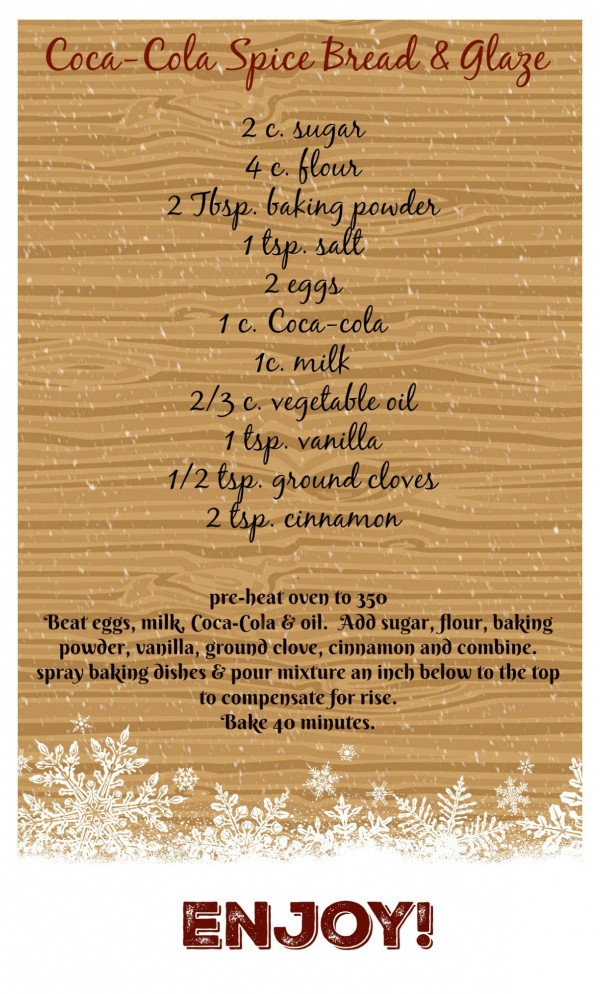 Coca-Cola Spice Bread & Glaze
2 c. sugar
4 c. flour
2 Tbsp. baking powder
1 tsp. salt
2 eggs
1 c. Coca-cola
1c. milk
2/3 c. vegetable oil
1 tsp. vanilla
1/2 tsp. ground cloves
2 tsp. cinnamon
pre-heat oven to 350
Beat eggs, milk, Coca-Cola & oil. Add sugar, flour, baking
powder, vanilla, ground clove, cinnamon and combine.
spray baking dishes & pour mixture an inch below to the top
to compensate for rise.
Bake 40 minutes.
ENJOY!